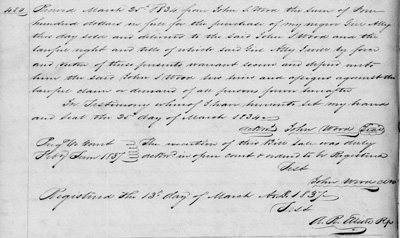 Received March 25th 1834 from John S Wood the sum of Four
hundred dollars in full for the purchase of my negro Girl Ally
this day sold and delivered to the said John S Wood and the
lawful right and title of which said Girl Ally I ever by force
and virtue of these presents warrant secure and defend unto
him the said John S Wood his heirs and assigns against the
lawful claim or demand of all persons forever hereafter
In Testimony whereof I have hereunto set my hand
and seal the 25th day of March 1834
John Wood Seal
Court The execution of this Bill Sale was duly
Feby Term 1837 in open court & ordered to be Registered
Test
John Wood Clk
Registered the 13th day of March A.D. 1837
Test